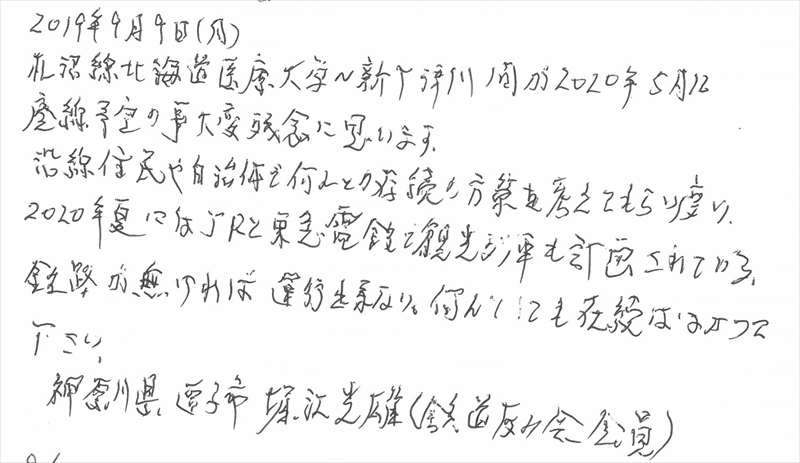 2019年9月9日(月)
札沼線北海道医療大学～新十津川間が2020年5月に
廃線予定の事大変残念に思います。
沿線住民や自治体で何んとか存続の方策を考えてもらい度い。
2020年夏にはJRと東急電鉄で観光列車も計画されている。
鉄路が無ければ運行出来ない。何んとしても存続
下さい。
神奈川県逗子市 光雄(鉄道友の会会員)